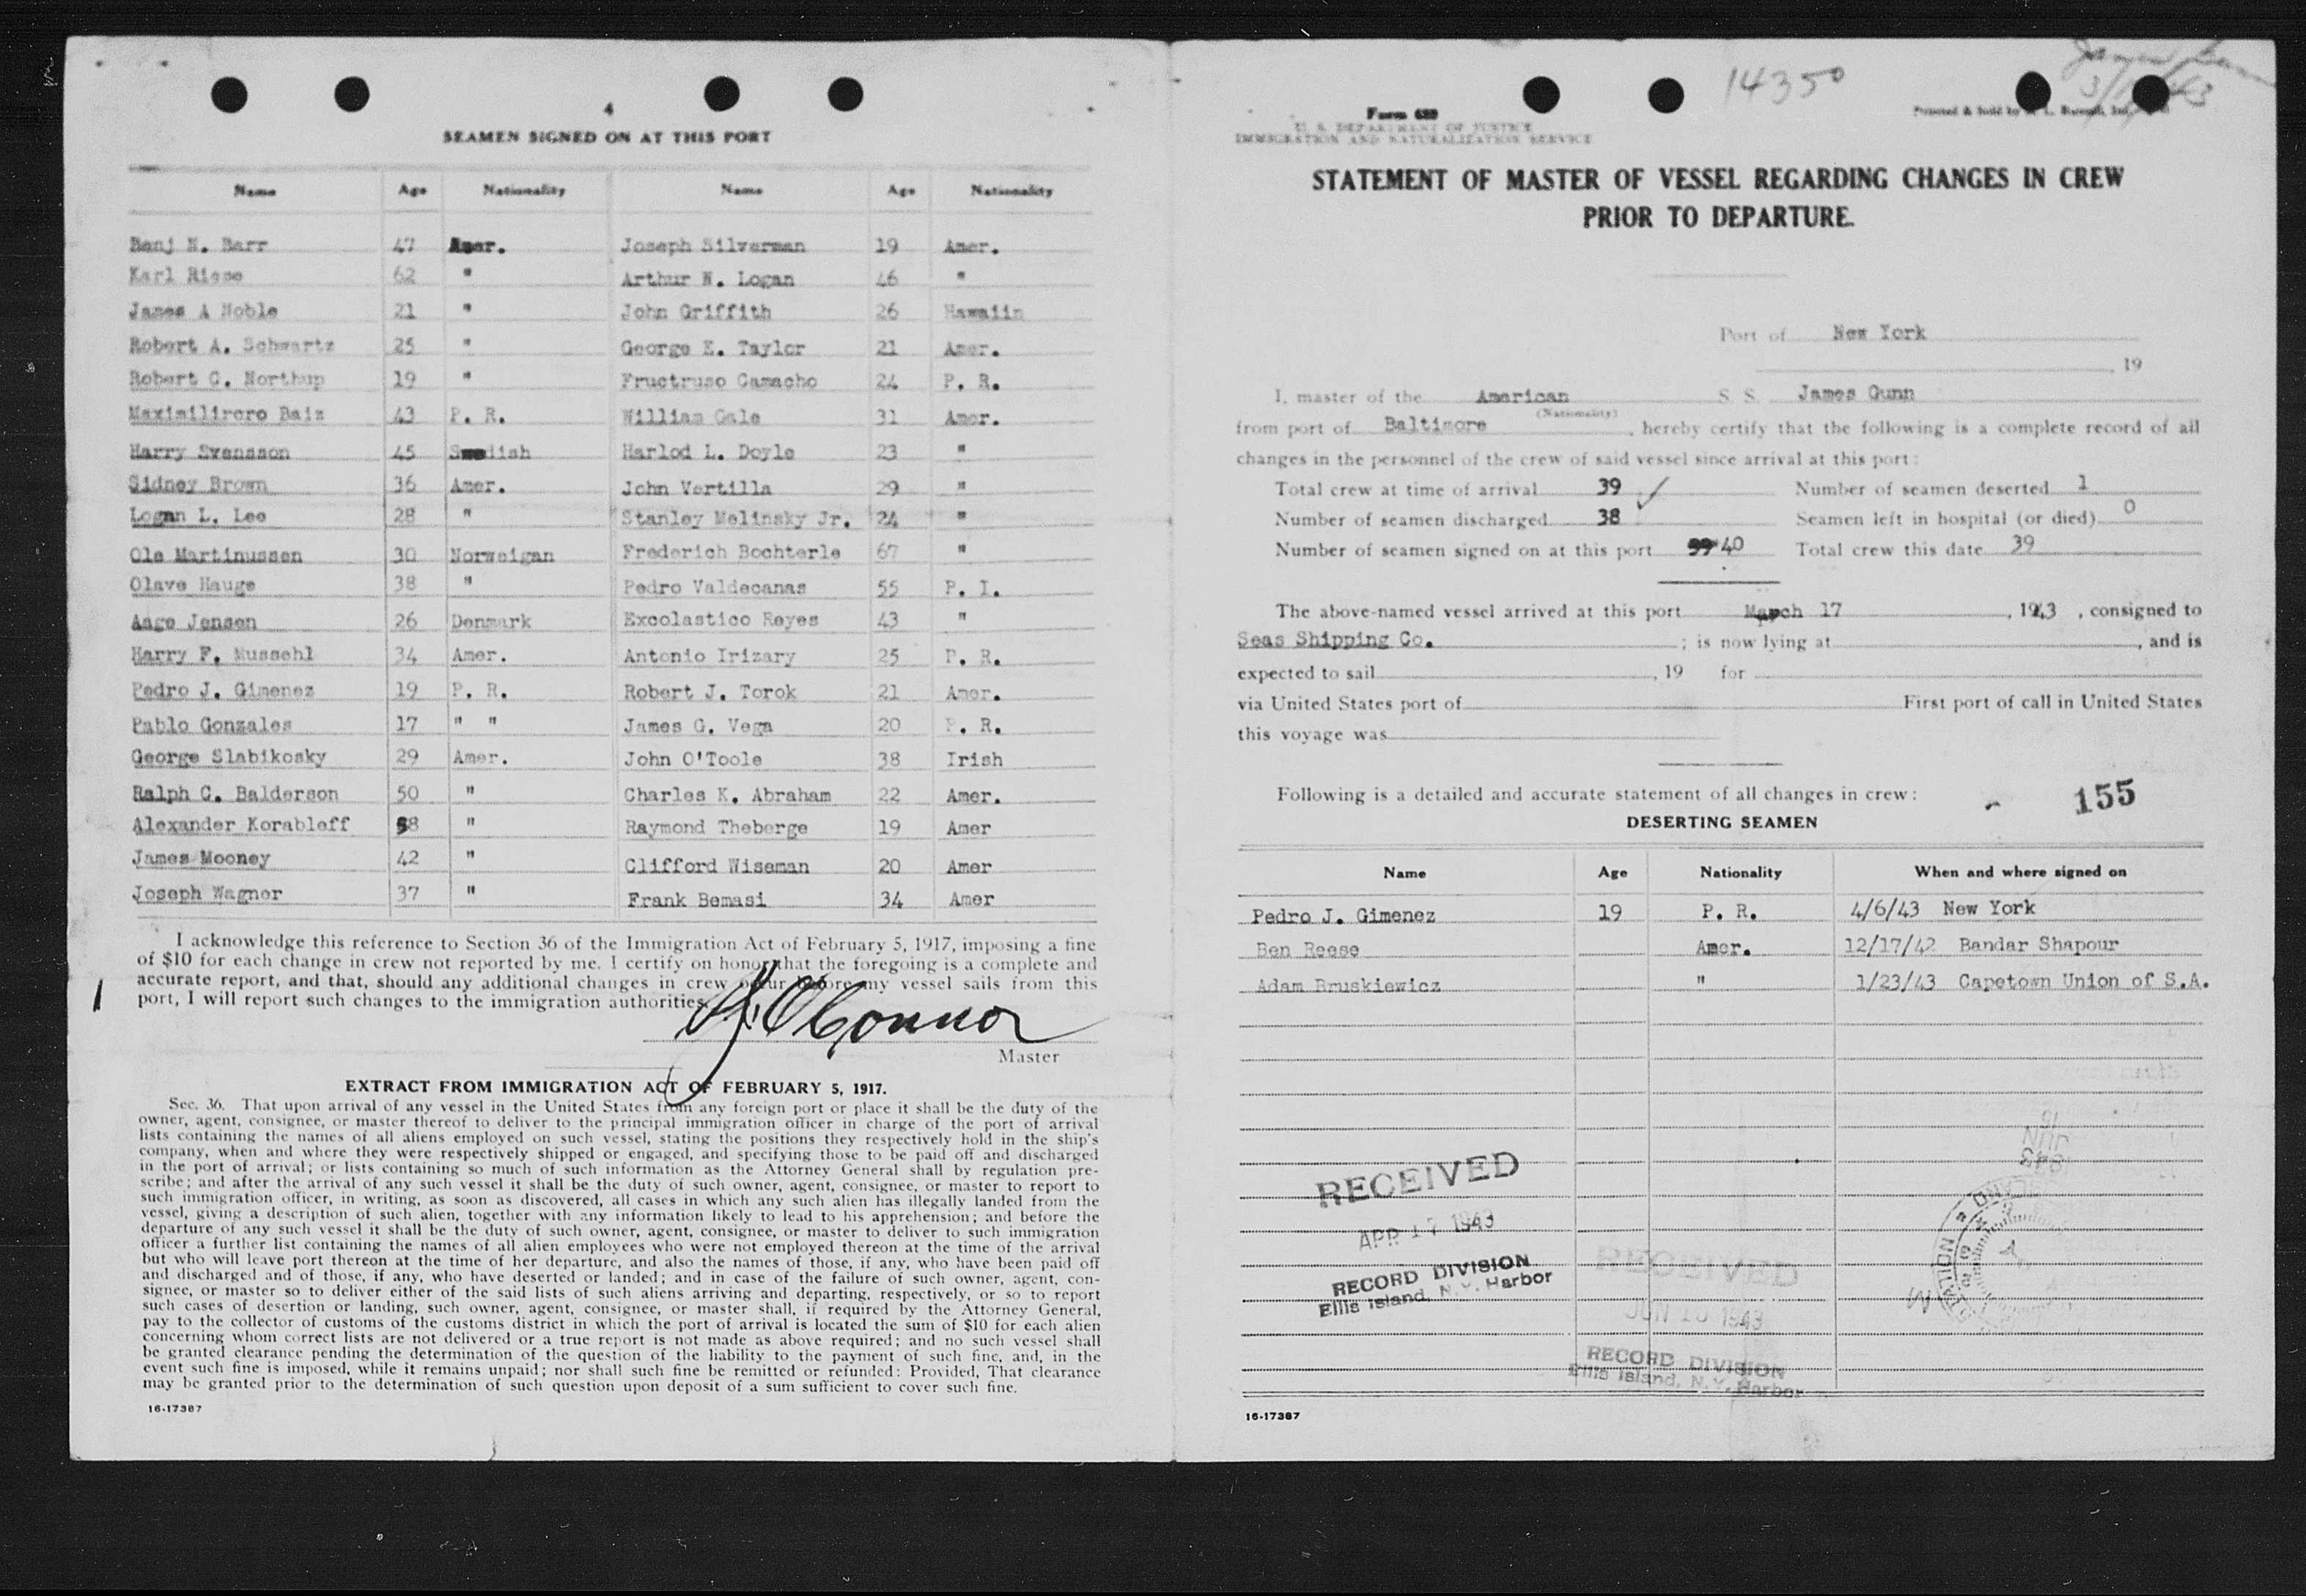 4
SEAMEN SIGNED ON AT THIS PORT
Name Age Nationality Name Age Nationality
Benj N. Barr 47 Amer. Joseph Silverman 19 Amer.
Karl Risse 62 " Arthur W. Logan 46 "
James A Noble 21 " John Griffith 26 Hawaiin
Robert A. Schwartz 25 " George E. Taylor 21 Amer.
Robert C. Northup 19 " Fructruso Camacho 24 P. R.
Maximilircro Baiz 43 P. R. William Gale 31 Amer.
Harry Svensson 45 Swedish Harlod L. Doyle 23 "
Sidney Brown 36 Amer. John Vertilla 29 "
Logan L. Lee 28 " Stanley Melinsky Jr. 24 "
Ole Martinussen 30 Norweigan Frederich Bochterle 67 "
Olave Hauge 38 " Pedro Valdecanas 55 P. I.
Aage Jensen 26 Denmark Excolastico Reyes 43 "
Harry F. Mussehl 34 Amer. Antonio Irizary 25 P. R.
Pedro J. Gimenez 19 P. R. Robert J. Torok 21 Amer.
Pablo Gonzales 17 " " James G. Vega 20 P. R.
George Slabikosky 29 Amer. John O'Toole 38 Irish
Ralph C. Balderson 50 " Charles K. Abraham 22 Amer.
Alexander Korableff 58 " Raymond Theberge 19 Amer
James Mooney 42 " Clifford Wiseman 20 Amer
Joseph Wagner 37 " Frank Bemasi 34 Amer
I acknowledge this reference to Section 36 of the Immigration Act of February 5, 1917, imposing a fine
of $10 for each change in crew not reported by me. I certify on honor that the foregoing is a complete and
accurate report, and that, should any additional changes in crew occur before my vessel sails from this
port, I will report such changes to the immigration authorities.
O'Connor
Master
EXTRACT FROM IMMIGRATION ACT OF FEBRUARY 5, 1917.
Sec. 36. That upon arrival of any vessel in the United States from any foreign port or place it shall be the duty of the
owner, agent, consignee, or master thereof to deliver to the principal immigration officer in charge of the port of arrival
lists containing the names of all aliens employed on such vessel, stating the positions they respectively hold in the ship's
company, when and where they were respectively shipped or engaged, and specifying those to be paid off and discharged
in the port of arrival; or lists containing so much of such information as the Attorney General shall by regulation pre-
scribe; and after the arrival of any such vessel it shall be the duty of such owner, agent, consignee, or master to report to
such immigration officer, in writing, as soon as discovered, all cases in which any such alien has illegally landed from the
vessel, giving a description of such alien, together with any information likely to lead to his apprehension; and before the
departure of any such vessel it shall be the duty of such owner, agent, consignee, or master to deliver to such immigration
officer a further list containing the names of all alien employees who were not employed thereon at the time of the arrival
but who will leave port thereon at the time of her departure, and also the names of those, if any, who have been paid off
and discharged and of those, if any, who have deserted or landed; and in case of the failure of such owner, agent, con-
signee, or master so to deliver either of the said lists of such aliens arriving and departing, respectively, or so to report
such cases of desertion or landing, such owner, agent, consignee, or master shall, if required by the Attorney General,
pay to the collector of customs of the customs district in which the port of arrival is located the sum of $10 for each alien
concerning whom correct lists are not delivered or a true report is not made as above required; and no such vessel shall
be granted clearance pending the determination of the question of the liability to the payment of such fine, and, in the
event such fine is imposed, while it remains unpaid; nor shall such fine be remitted or refunded: Provided, That clearance
may be granted prior to the determination of such question upon deposit of a sum sufficient to cover such fine.
16-17387
14350
Form 689
U. S. DEPARTMENT OF JUSTICE
IMMIGRATION AND NATURALIZATION SERVICE
STATEMENT OF MASTER OF VESSEL REGARDING CHANGES IN CREW
PRIOR TO DEPARTURE.
Port of New York
, 19
I, master of the American S. S. James Gunn
(Nationality)
from port of Baltimore, hereby certify that the following is a complete record of all
changes in the personnel of the crew of said vessel since arrival at this port:
Total crew at time of arrival 39 ✓ Number of seamen deserted 1
Number of seamen discharged 38 Seamen left in hospital (or died) 0
Number of seamen signed on at this port 40 Total crew this date 39
The above-named vessel arrived at this port March 17, 1943, consigned to
Seas Shipping Co. ; is now lying at , and is
expected to sail , 19 for
via United States port of First port of call in United States
this voyage was
Following is a detailed and accurate statement of all changes in crew: 155
DESERTING SEAMEN
Name Age Nationality When and where signed on
Pedro J. Gimenez 19 P. R. 4/6/43 New York
Ben Reese Amer. 12/17/42 Bandar Shapour
Adam Bruskiewicz " 1/23/43 Capetown Union of S.A.
RECEIVED
APR 17 1943
RECORD DIVISION
Ellis Island, N.Y. Harbor
RECEIVED
JUN 10 1943
RECORD DIVISION
Ellis Island, N.Y. Harbor
16-17387